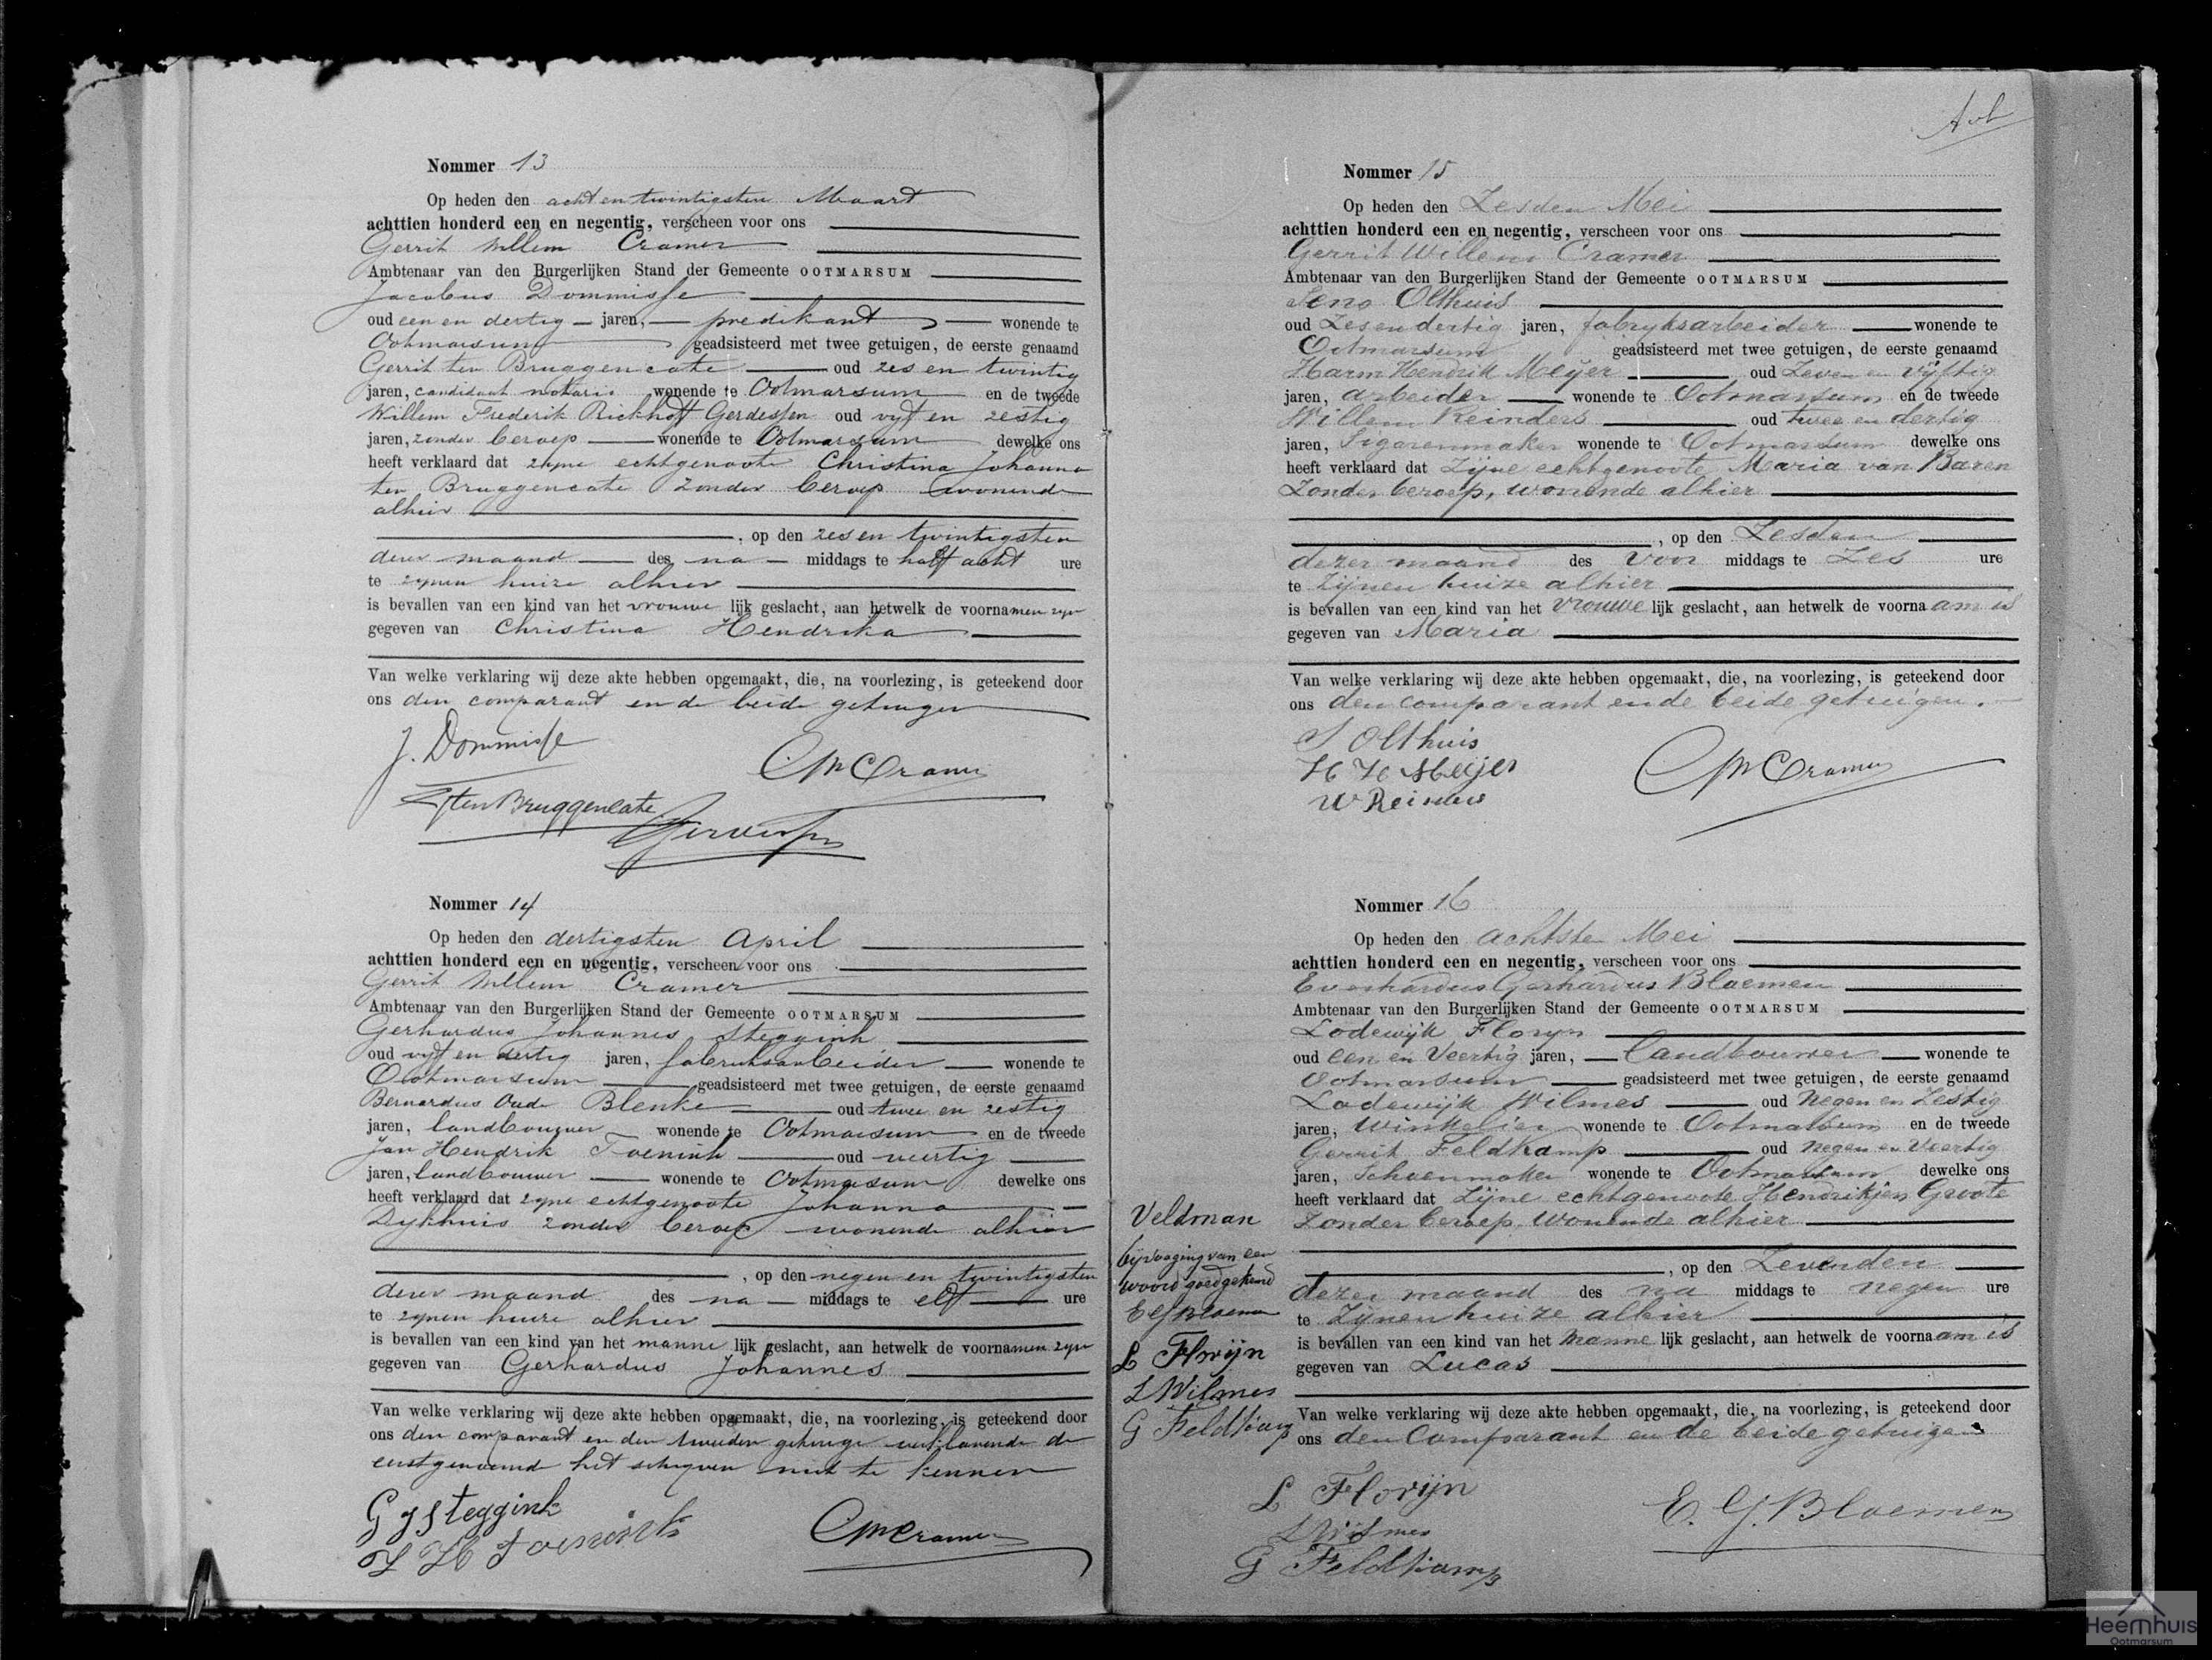 Nommer 13
Op heden den acht en twintigsten Maart
achttien honderd een en negentig, verscheen voor ons
Gerrit Willem Cramer
Ambtenaar van den Burgerlijken Stand der Gemeente OOTMARSUM
Jacobus Dommisse
oud een en dertig jaren, predikant wonende te
Ootmarsum geadsisteerd met twee getuigen, de eerste genaamd
Gerrit ten Bruggencate oud zes en twintig
jaren, candidaat notaris wonende te Ootmarsum en de tweede
Willem Frederik Rickhoff Gerdessen oud vyf en zestig
jaren, zonder beroep wonende te Ootmarsum dewelke ons
heeft verklaard dat zyne echtgenoote Christina Johanna
ten Bruggencate zonder beroep wonende
alhier
, op den zes en twintigsten
dezer maand des na middags te half acht ure
te zynen huize alhier
is bevallen van een kind van het vrouwe lijk geslacht, aan hetwelk de voornamen zyn
gegeven van Christina Hendrika
Van welke verklaring wij deze akte hebben opgemaakt, die, na voorlezing, is geteekend door
ons den comparant en de beide getuigen
J. Dommisse
GWCramer
G ten Bruggencate
Nommer 14
Op heden den dertigsten April
achttien honderd een en negentig, verscheen voor ons
Gerrit Willem Cramer
Ambtenaar van den Burgerlijken Stand der Gemeente OOTMARSUM
Gerhardus Johannes Steggink
oud vyf en dertig jaren, fabrieksarbeider wonende te
Ootmarsum geadsisteerd met twee getuigen, de eerste genaamd
Bernardus Oude Blenke oud twee en zestig
jaren, landbouwer wonende te Ootmarsum en de tweede
Jan Hendrik Toenink oud veertig
jaren, landbouwer wonende te Ootmarsum dewelke ons
heeft verklaard dat zyne echtgenoote Johanna
Dykhuis zonder beroep wonende alhier
, op den negen en twintigsten
dezer maand des na middags te elf ure
te zynen huize alhier
is bevallen van een kind van het manne lijk geslacht, aan hetwelk de voornamen zyn
gegeven van Gerhardus Johannes
Van welke verklaring wij deze akte hebben opgemaakt, die, na voorlezing, is geteekend door
ons den comparant en den tweeden getuige verklarende de
eerstgenoemd het schryven niet te kennen
G J Steggink
J H Toenink
GWCramer
Nommer 15
Op heden den Zesden Mei
achttien honderd een en negentig, verscheen voor ons
Gerrit Willem Cramer
Ambtenaar van den Burgerlijken Stand der Gemeente OOTMARSUM
Seno Olthuis
oud Zes en dertig jaren, fabryksarbeider wonende te
Ootmarsum geadsisteerd met twee getuigen, de eerste genaamd
Harm Hendrik Meijer oud Zeven en Vijftig
jaren, arbeider wonende te Ootmarsum en de tweede
Willem Reinders oud twee en dertig
jaren, Sigarenmaker wonende te Ootmarsum dewelke ons
heeft verklaard dat Zijne echtgenoote Maria van Baren
Zonder beroep, wonende alhier
, op den Zesden
dezer maand des Voor middags te Zes ure
te Zijnen huize alhier
is bevallen van een kind van het Vrouwe lijk geslacht, aan hetwelk de voorna am is
gegeven van Maria
Van welke verklaring wij deze akte hebben opgemaakt, die, na voorlezing, is geteekend door
ons den comparant en de beide getuigen.
S Olthuis
H H Meijer
W Reinders
GWCramer
Nommer 16
Op heden den achtste Mei
achttien honderd een en negentig, verscheen voor ons
Everhardus Gerhardus Bloemen
Ambtenaar van den Burgerlijken Stand der Gemeente OOTMARSUM
Lodewijk Floryn
oud een en Veertig jaren, landbouwer wonende te
Ootmarsum geadsisteerd met twee getuigen, de eerste genaamd
Lodewijk Wilmes oud Negen en Zestig
jaren, Winkelier wonende te Ootmarsum en de tweede
Gerrit Feldkamp oud Negen en Veertig
jaren, Schoenmaker wonende te Ootmarsum dewelke ons
heeft verklaard dat Zijne echtgenoote Hendrikjen Groote
Zonder beroep, wonende alhier
, op den Zevenden
dezer maand des na middags te negen ure
te Zijnen huize alhier
is bevallen van een kind van het Manne lijk geslacht, aan hetwelk de voorna am is
gegeven van Lucas
Van welke verklaring wij deze akte hebben opgemaakt, die, na voorlezing, is geteekend door
ons den Comparant en de beide getuigen
L Florijn
L Wilmes
G Feldkamp
E. G. Bloemen
Veldman
bijvoeging van een
woord goedgekend
E G Bloemen
L Florijn
L Wilmes
G Feldkamp
Heemhuis
Ootmarsum